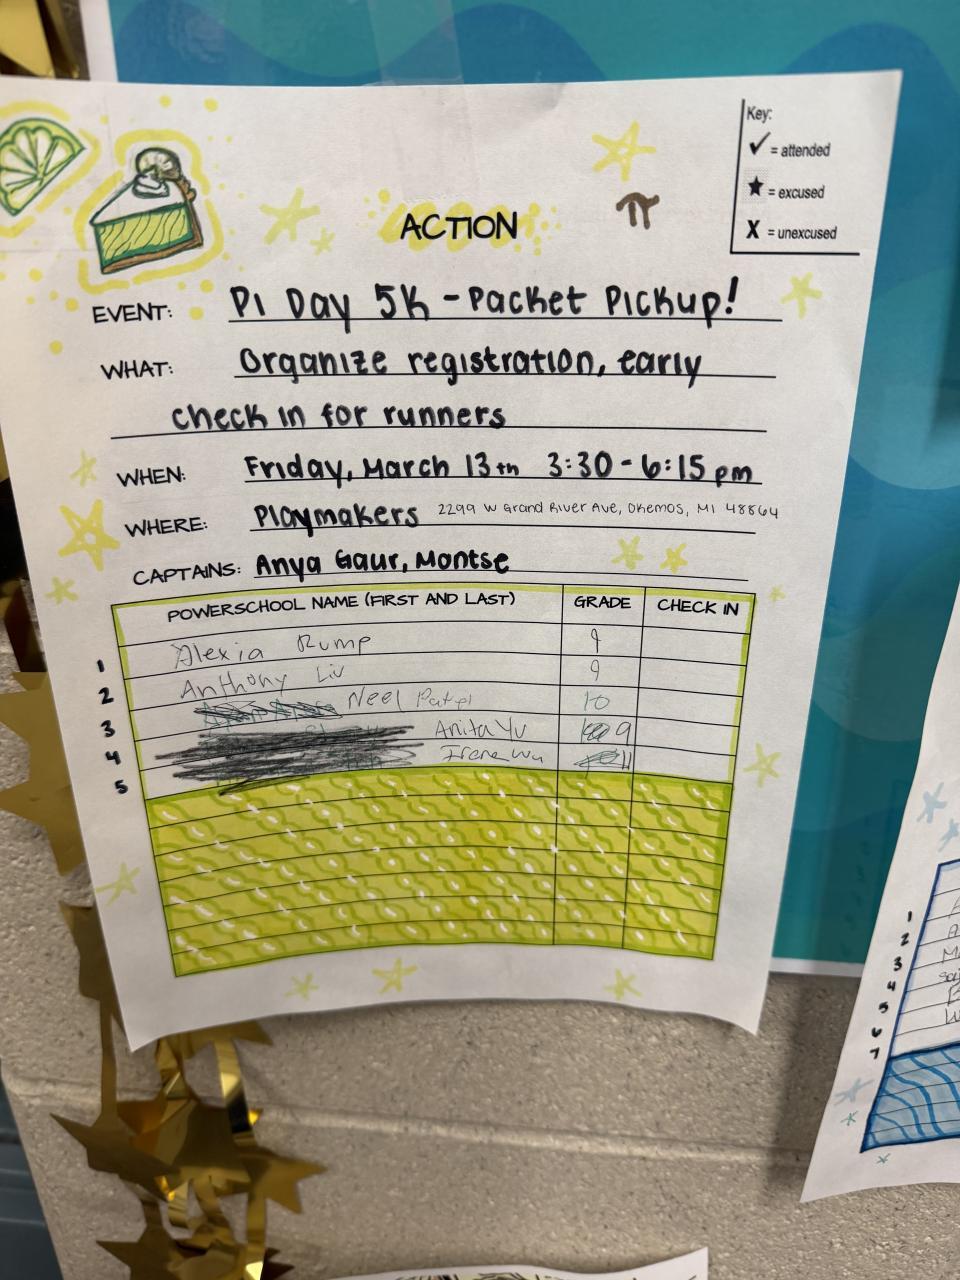 Key:
✓ = attended
★ = excused
X = unexcused
π
ACTION
EVENT: Pi Day 5K - Packet Pickup!
WHAT: Organize registration, early
check in for runners
WHEN: Friday, March 13th 3:30 - 6:15 pm
WHERE: Playmakers 2299 W Grand River Ave, Okemos, MI 48864
CAPTAINS: Anya Gaur, Montse
POWERSCHOOL NAME (FIRST AND LAST) GRADE CHECK IN
1 Alexia Rump 9
2 Anthony Liu 9
3 Neel Patel 10
4 Anita Yu 9
5 Irene Wu 11
1
2
3
4
5
6
7